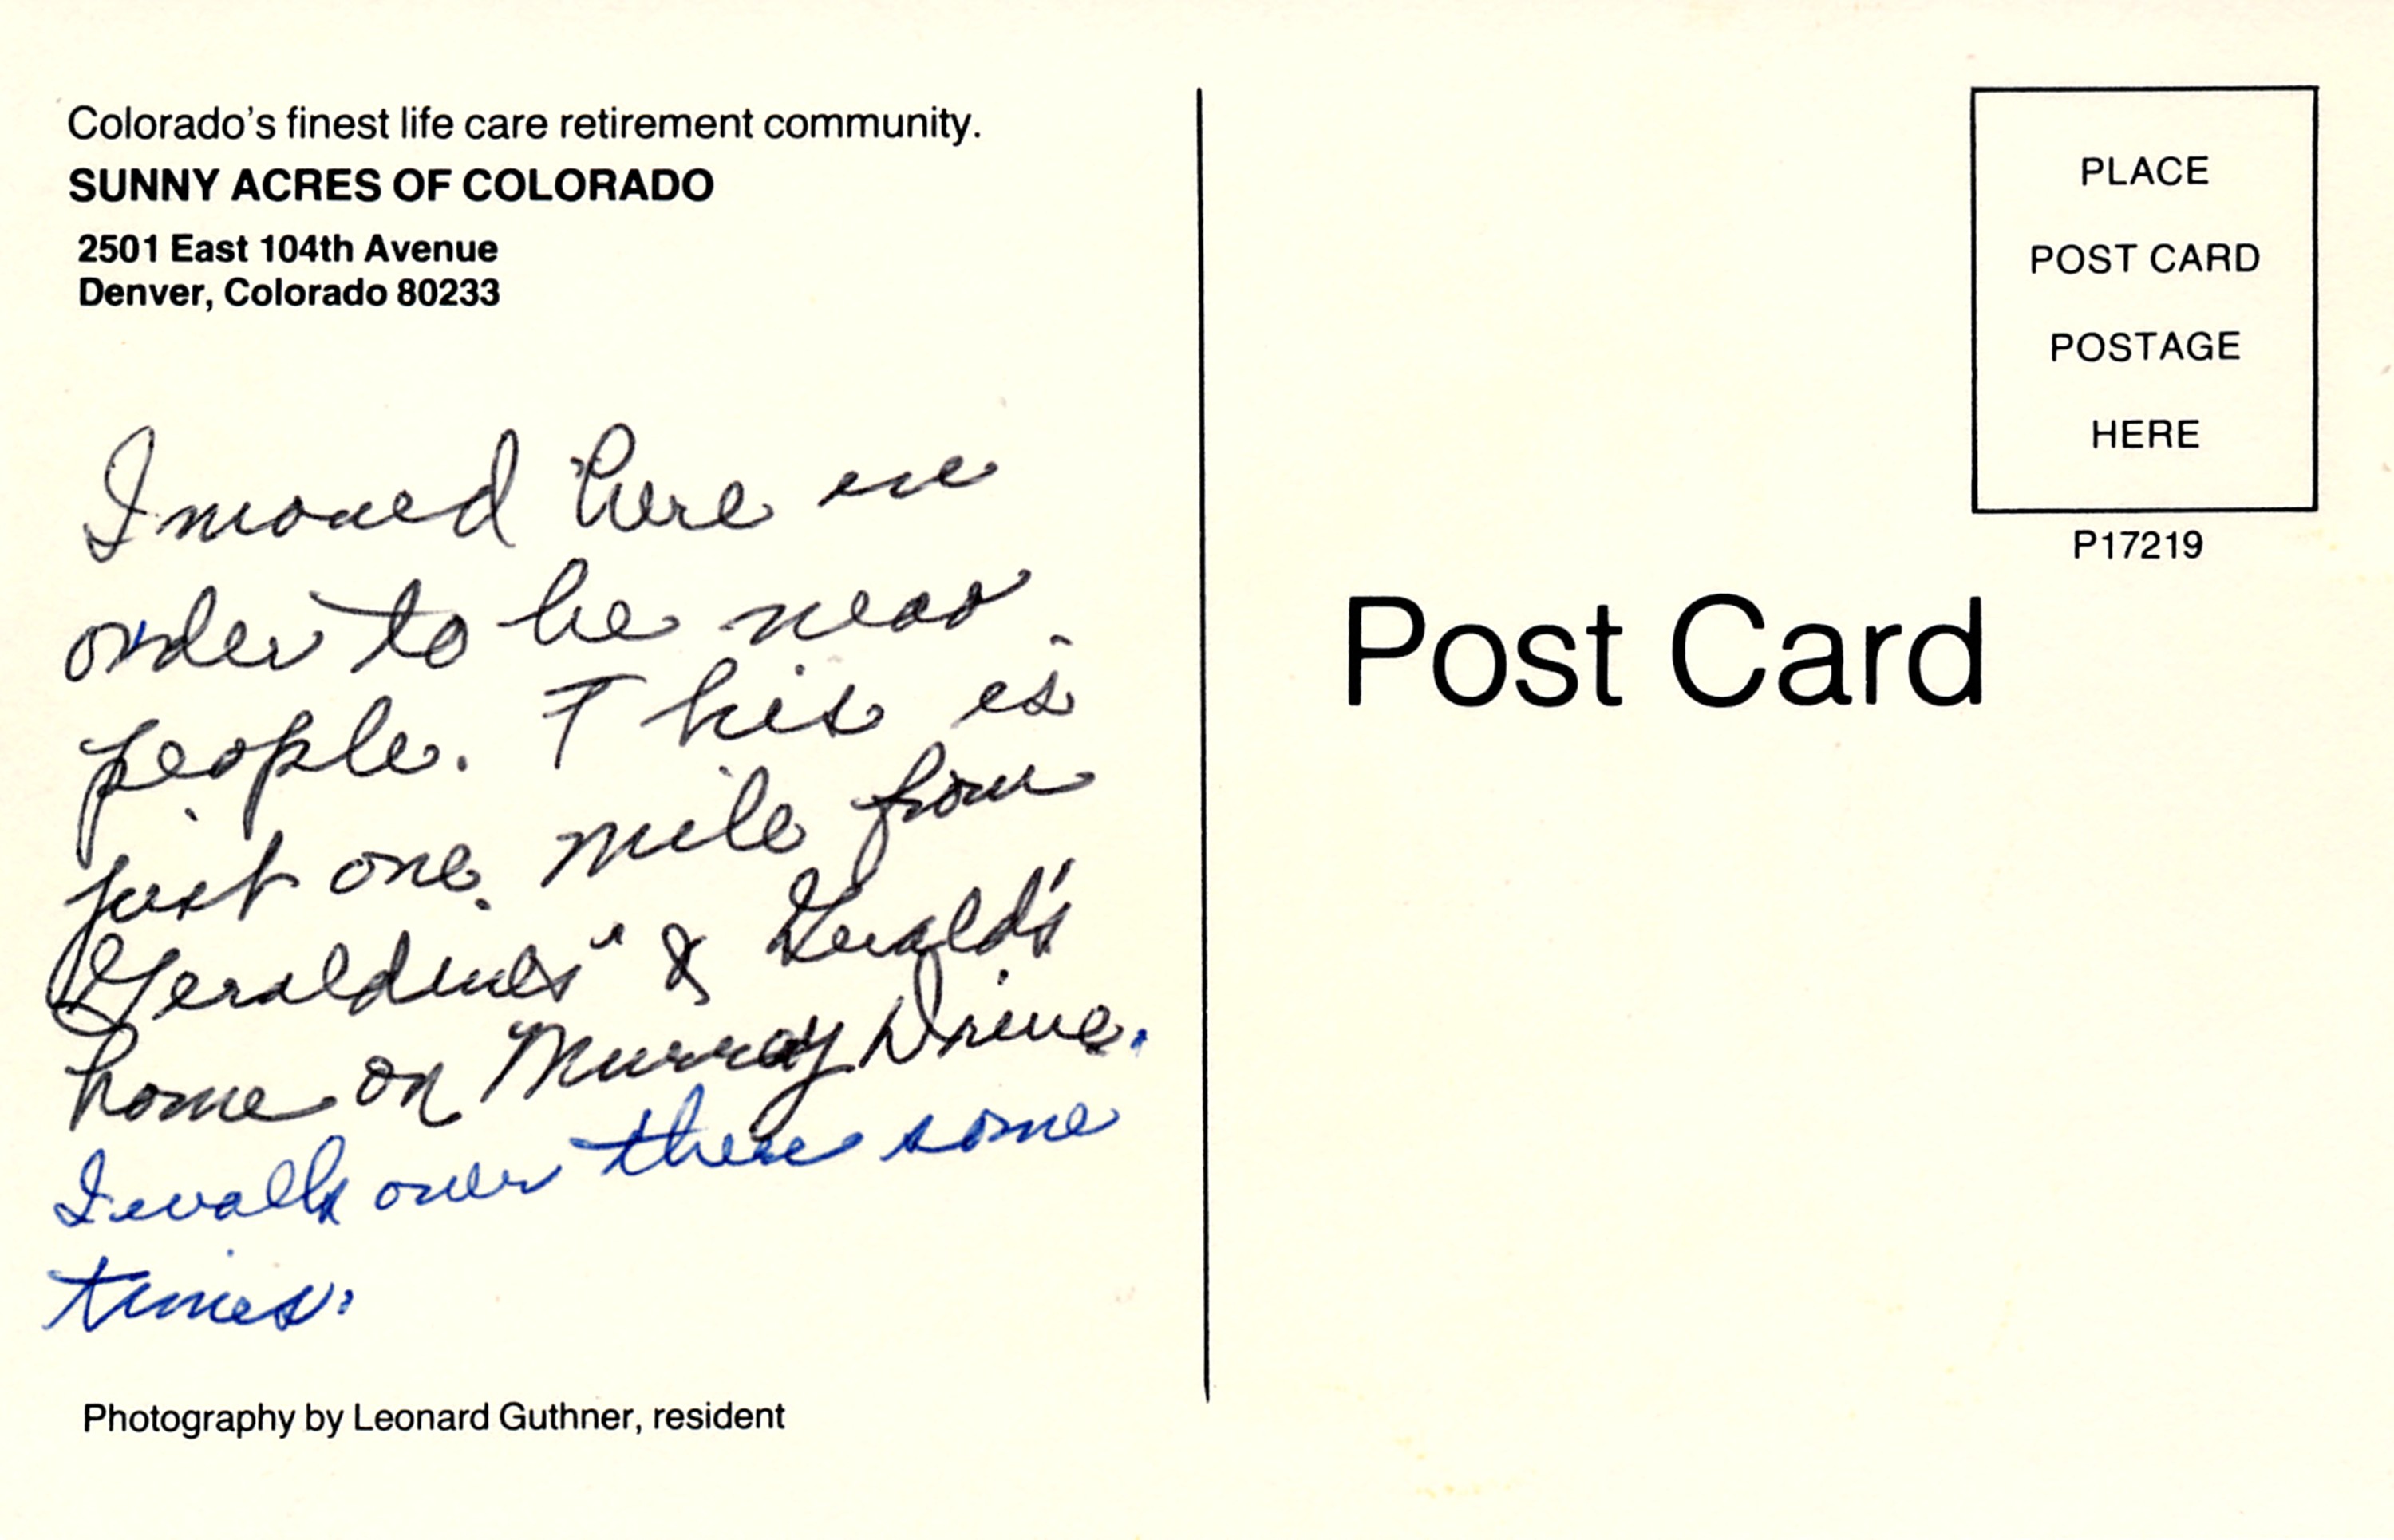 Colorado's finest life care retirement community.
SUNNY ACRES OF COLORADO
2501 East 104th Avenue
Denver, Colorado 80233
I moved here in
order to be near
people. This is
just one mile from
Geraldine's & Gerald's
home on Murray Drive.
I walk over there some
times.
Photography by Leonard Guthner, resident
PLACE
POST CARD
POSTAGE
HERE
P17219
Post Card